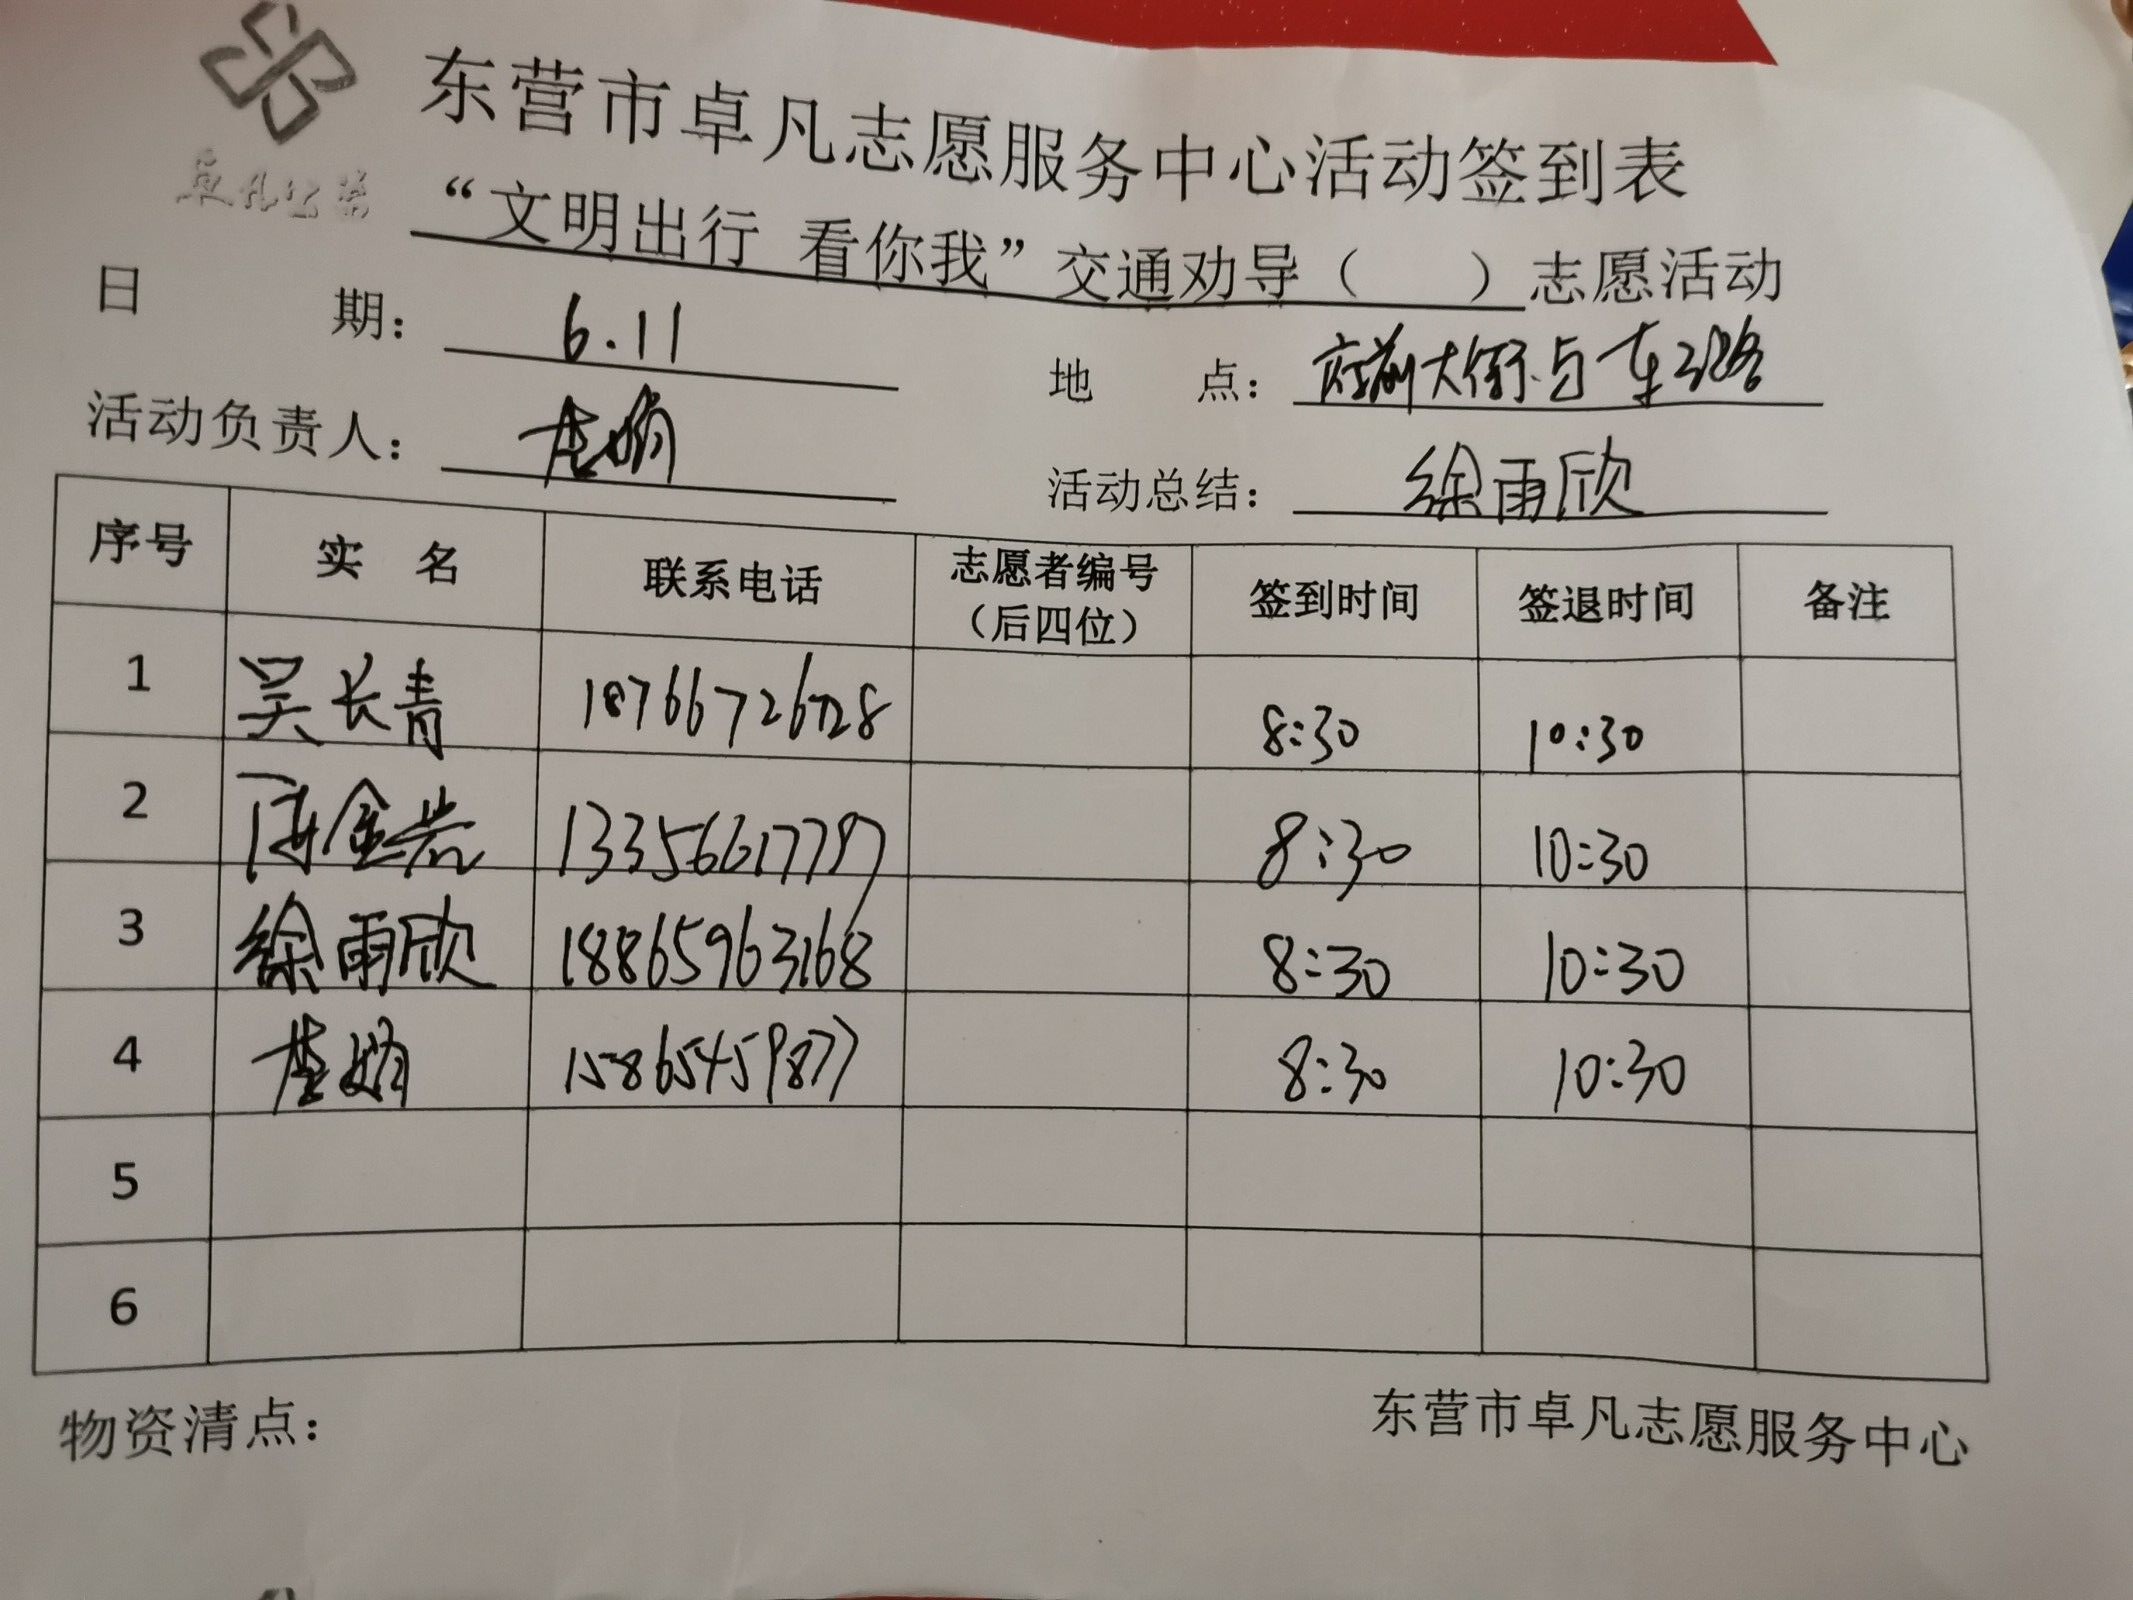 卓凡公益
东营市卓凡志愿服务中心活动签到表
“文明出行 看你我”交通劝导（ ）志愿活动
日期： 6.11 地点： 府前大街与东三路
活动负责人： 活动总结： 徐雨欣
序号 实名 联系电话 志愿者编号（后四位） 签到时间 签退时间 备注
1 吴长青 18766726728 8:30 10:30
2 陈金岩 13356617797 8:30 10:30
3 徐雨欣 18865963168 8:30 10:30
4 15865459877 8:30 10:30
5
6
物资清点： 东营市卓凡志愿服务中心